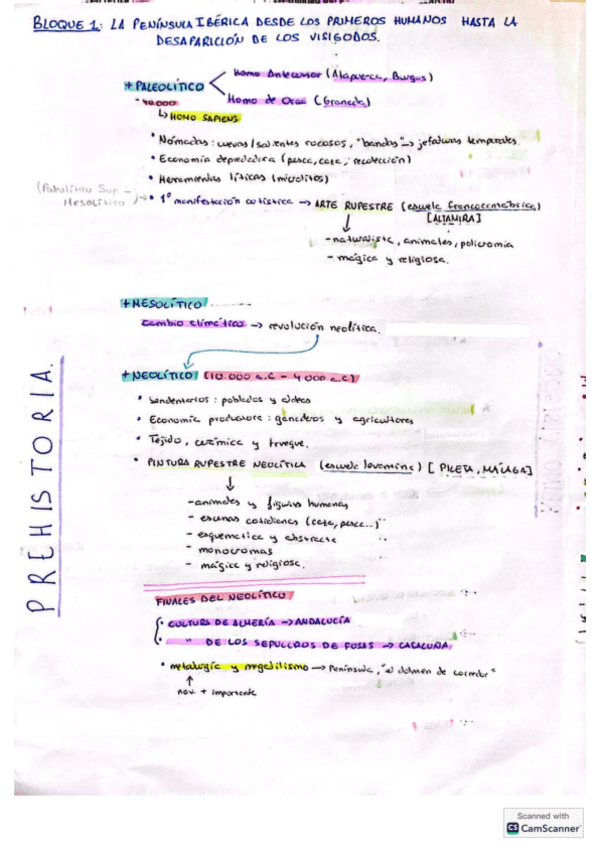 BLOQUE 1: LA PENÍNSULA IBÉRICA DESDE LOS PRIMEROS HUMANOS HASTA LA
DESAPARICIÓN DE LOS VISIGODOS.
+ PALEOLÍTICO
Homo Antecursor (Atapuerca, Burgos)
Homo de Orce (Granada)
-40.000
↳ HOMO SAPIENS
• Nómadas: cuevas/salientes rocosos, "bandas" → jefaturas temporales.
• Economía depredadora (pesca, caza, recolección)
• Herramientas líticas (microlitos)
(Paleolítico Sup -
Mesolítico)
• 1º manifestación artística → ARTE RUPESTRE (escuela francocantábrica)
[ALTAMIRA]
- naturalista, animales, policromía
- mágica y religiosa.
+ MESOLÍTICO
cambio climático → revolución neolítica.
+ NEOLÍTICO (10 000 a.C - 4 000 a.C)
• Sendentarios: poblados y aldeas
• Economía productora: ganaderos y agricultores
• Tejido, cerámica y trueque.
• PINTURA RUPESTRE NEOLÍTICA (escuela levantina) [PILETA, MÁLAGA]
- animales y figuras humanas
- escenas cotidianas (caza, pesca...)
- esquemática y abstracta
- monocromas
- mágica y religiosa.
PREHISTORIA.
FINALES DEL NEOLÍTICO
• CULTURA DE ALMERÍA → ANDALUCÍA
• " DE LOS SEPULCROS DE FOSAS → CATALUÑA,
• metalurgia y megalitismo → Península, "el dolmen de corredor"
↑
nov. + importante
Scanned with
CS CamScanner